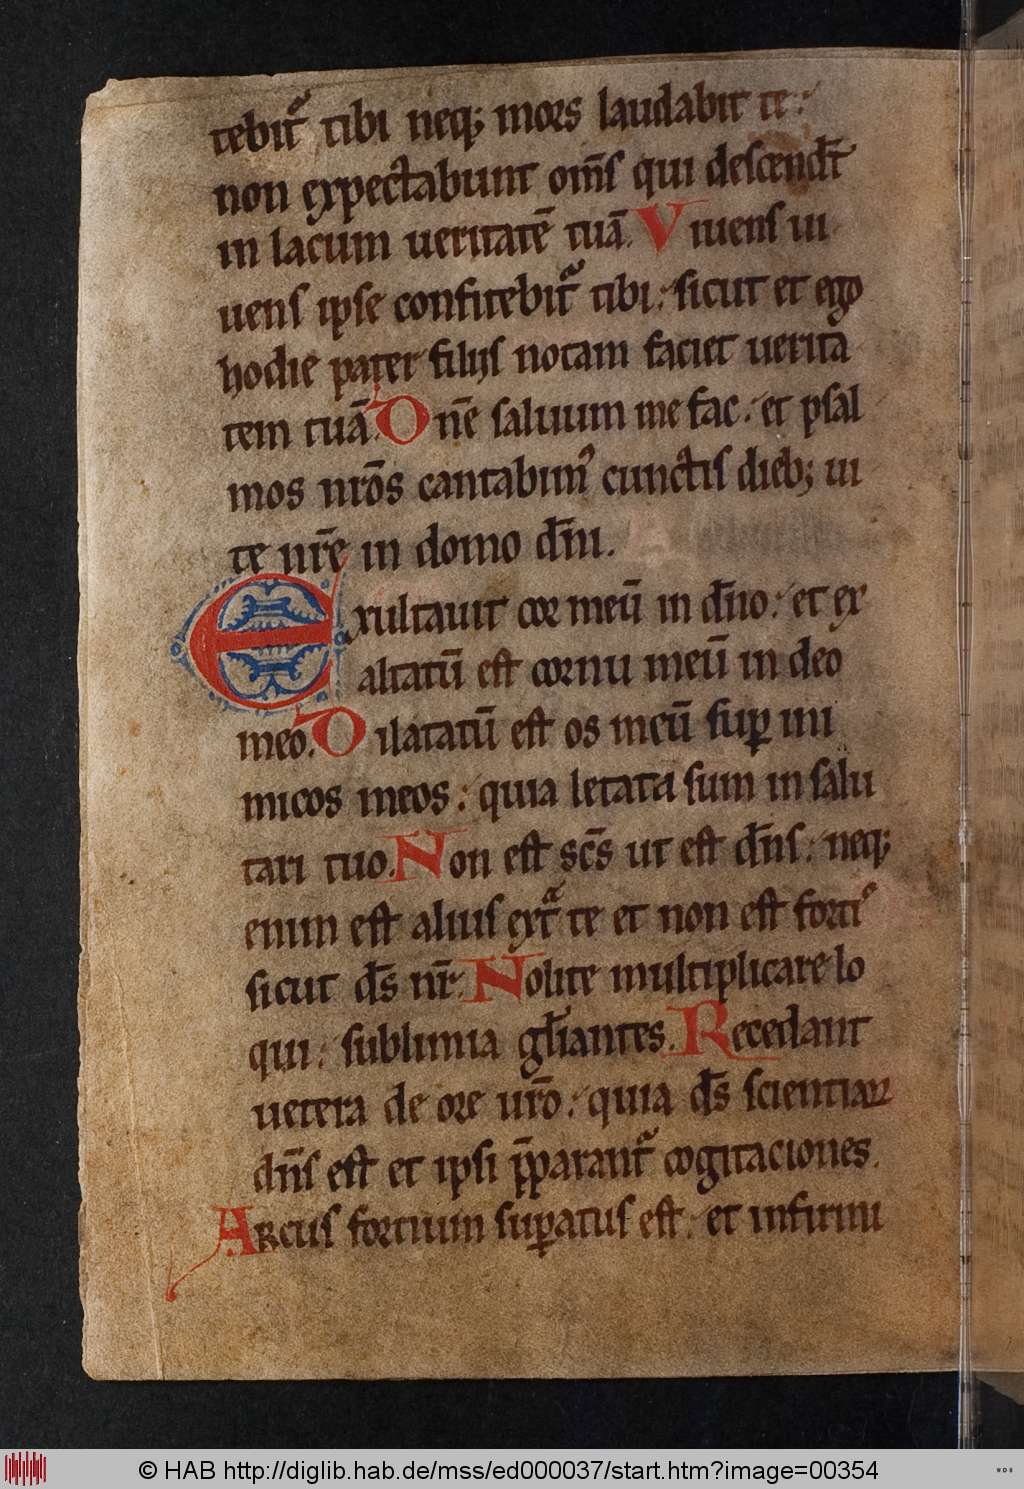 tebitᷓ tibi neq; mors laudabit te :
non expectabunt om̅s qui descend̅t
in lacum ueritatē tuā. Viuens ui
uens ipse confitebitᷓ tibi : sicut et ego
hodie pater filijs notam faciet uerita
tem tuā. Dn̅e saluum me fac : et psal
mos nr̅os cantabim᷒ cunctis dieb; ui
te nr̅e in domo dn̅i.
Exultauit cor meū in dn̅o : et ex
altatū est cornu meū in deo
meo. Dilatatū est os meū suꝑ ini
micos meos : quia letata sum in salu
tari tuo. Non est sc̅s ut est dn̅s : neq;
enim est alius extᷓ te et non est fortis
sicut ds̅ nr̅. Nolite multiplicare lo
qui : sublimia gl̅iantes. Recedant
uetera de ore ur̅o : quia ds̅ scientiaꝝ
dn̅s est et ipsi p̅parantᷓ cogitaciones.
Arcus fortium suꝑatus est : et infirmi
© HAB http://diglib.hab.de/mss/ed000037/start.htm?image=00354